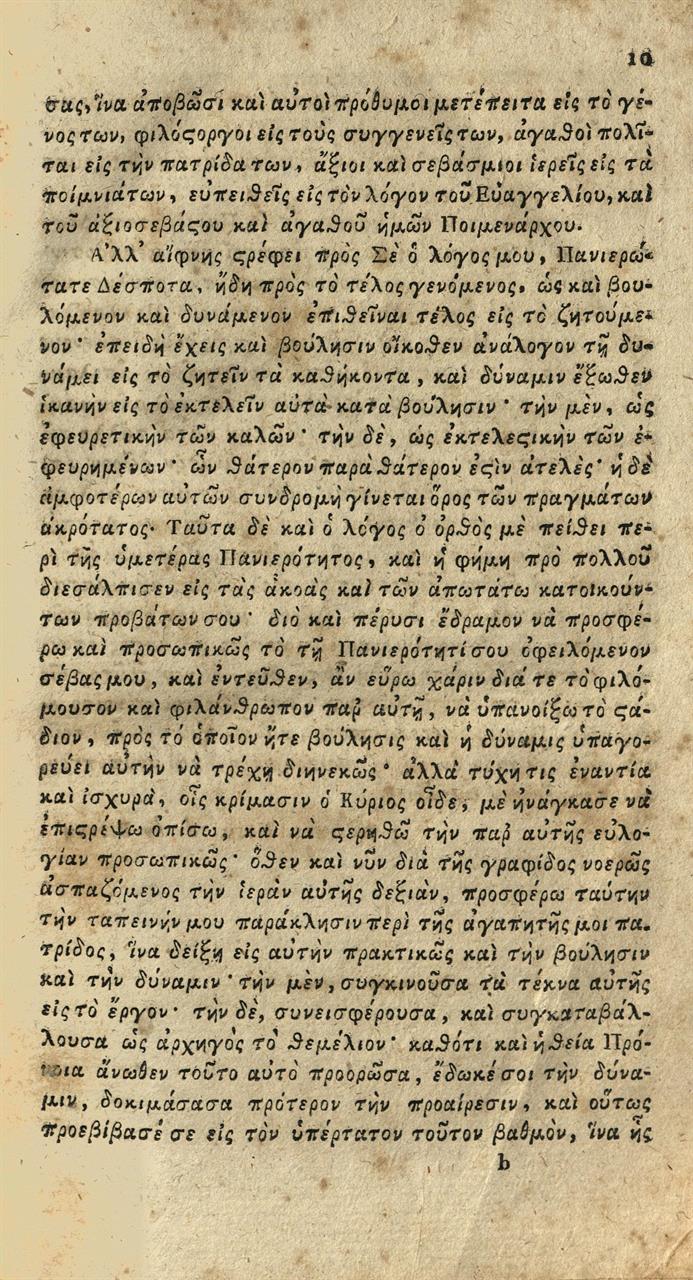 10
σας, ἵνα ἀποβῶσι καὶ αὐτοὶ πρόθυμοι μετέπειτα εἰς τὸ γέ-
νος των, φιλόςοργοι εἰς τοὺς συγγενεῖς των, ἀγαθοὶ πολῖ-
ται εἰς τὴν πατρίδα των, ἄξιοι καὶ σεβάσμιοι ἱερεῖς εἰς τὰ
ποίμνιάτων, εὐπειθεῖς εἰς τὸν λόγον τοῦ Εὐαγγελίου, καὶ
τοῦ ἀξιοσεβάςου καὶ ἀγαθοῦ ἡμῶν Ποιμενάρχου.
Ἀλλ' αἴφνης ςρέφει πρὸς Σὲ ὁ λόγος μου, Πανιερώ-
τατε Δέσποτα, ἤδη πρὸς τὸ τέλος γενόμενος, ὡς καὶ βου-
λόμενον καὶ δυνάμενον ἐπιθεῖναι τέλος εἰς τὸ ζητούμε-
νον· ἐπειδὴ ἔχεις καὶ βούλησιν οἴκοθεν ἀνάλογον τῇ δυ-
νάμει εἰς τὸ ζητεῖν τὰ καθήκοντα, καὶ δύναμιν ἔξωθεν
ἱκανὴν εἰς τὸ ἐκτελεῖν αὐτὰ κατὰ βούλησιν· τὴν μὲν, ὡς
ἐφευρετικὴν τῶν καλῶν· τὴν δὲ, ὡς ἐκτελεςικὴν τῶν ἐ-
φευρημένων· ὧν θάτερον παρὰ θάτερον ἐςὶν ἀτελὲς· ἡ δὲ
ἀμφοτέρων αὐτῶν συνδρομὴ γίνεται ὅρος τῶν πραγμάτων
ἀκρότατος. Ταῦτα δὲ καὶ ὁ λόγος ὁ ὀρθὸς μὲ πείθει πε-
ρὶ τῆς ὑμετέρας Πανιερότητος, καὶ ἡ φήμη πρὸ πολλοῦ
διεσάλπισεν εἰς τὰς ἀκοὰς καὶ τῶν ἀπωτάτω κατοικούν-
των προβάτων σου· διὸ καὶ πέρυσι ἔδραμον νὰ προσφέ-
ρω καὶ προσωπικῶς τὸ τῇ Πανιερότητί σου ὀφειλόμενον
σέβας μου, καὶ ἐντεῦθεν, ἂν εὕρω χάριν διά τε τὸ φιλό-
μουσον καὶ φιλάνθρωπον παρ' αὐτῇ, νὰ ὑπανοίξω τὸ ςά-
διον, πρὸς τὸ ὁποῖον ἥτε βούλησις καὶ ἡ δύναμις ὑπαγο-
ρεύει αὐτὴν νὰ τρέχῃ διηνεκῶς· ἀλλὰ τύχη τις ἐναντία
καὶ ἰσχυρὰ, οἷς κρίμασιν ὁ Κύριος οἶδε, μὲ ἠνάγκασε νὰ
ἐπιςρέψω ὀπίσω, καὶ νὰ ςερηθῶ τὴν παρ' αὐτῆς εὐλο-
γίαν προσωπικῶς· ὅθεν καὶ νῦν διὰ τῆς γραφίδος νοερῶς
ἀσπαζόμενος τὴν ἱερὰν αὐτῆς δεξιὰν, προσφέρω ταύτην
τὴν ταπεινήν μου παράκλησιν περὶ τῆς ἀγαπητῆς μοι πα-
τρίδος, ἵνα δείξῃ εἰς αὐτὴν πρακτικῶς καὶ τὴν βούλησιν
καὶ τὴν δύναμιν· τὴν μὲν, συγκινοῦσα τὰ τέκνα αὐτῆς
εἰς τὸ ἔργον· τὴν δὲ, συνεισφέρουσα, καὶ συγκαταβάλ-
λουσα ὡς ἀρχηγὸς τὸ θεμέλιον· καθότι καὶ ἡ θεία Πρό-
νοια ἄνωθεν τοῦτο αὐτὸ προορῶσα, ἔδωκέ σοι τὴν δύνα-
μιν, δοκιμάσασα πρότερον τὴν προαίρεσιν, καὶ οὕτως
προεβίβασέ σε εἰς τὸν ὑπέρτατον τοῦτον βαθμὸν, ἵνα ᾖς
b